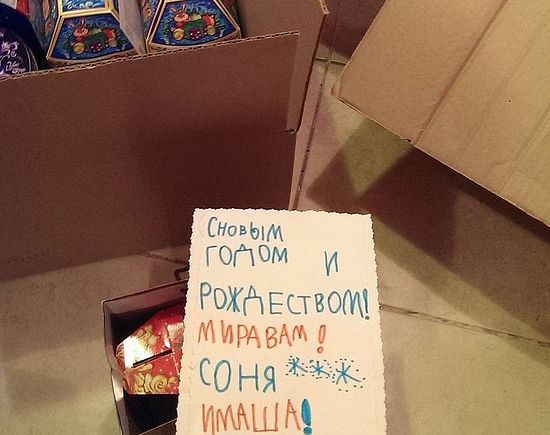 СНОВЫМ
ГОДОМ И
РОЖДЕСТВОМ!
МИРАВАМ!
СОНЯ ***
ИМАША!